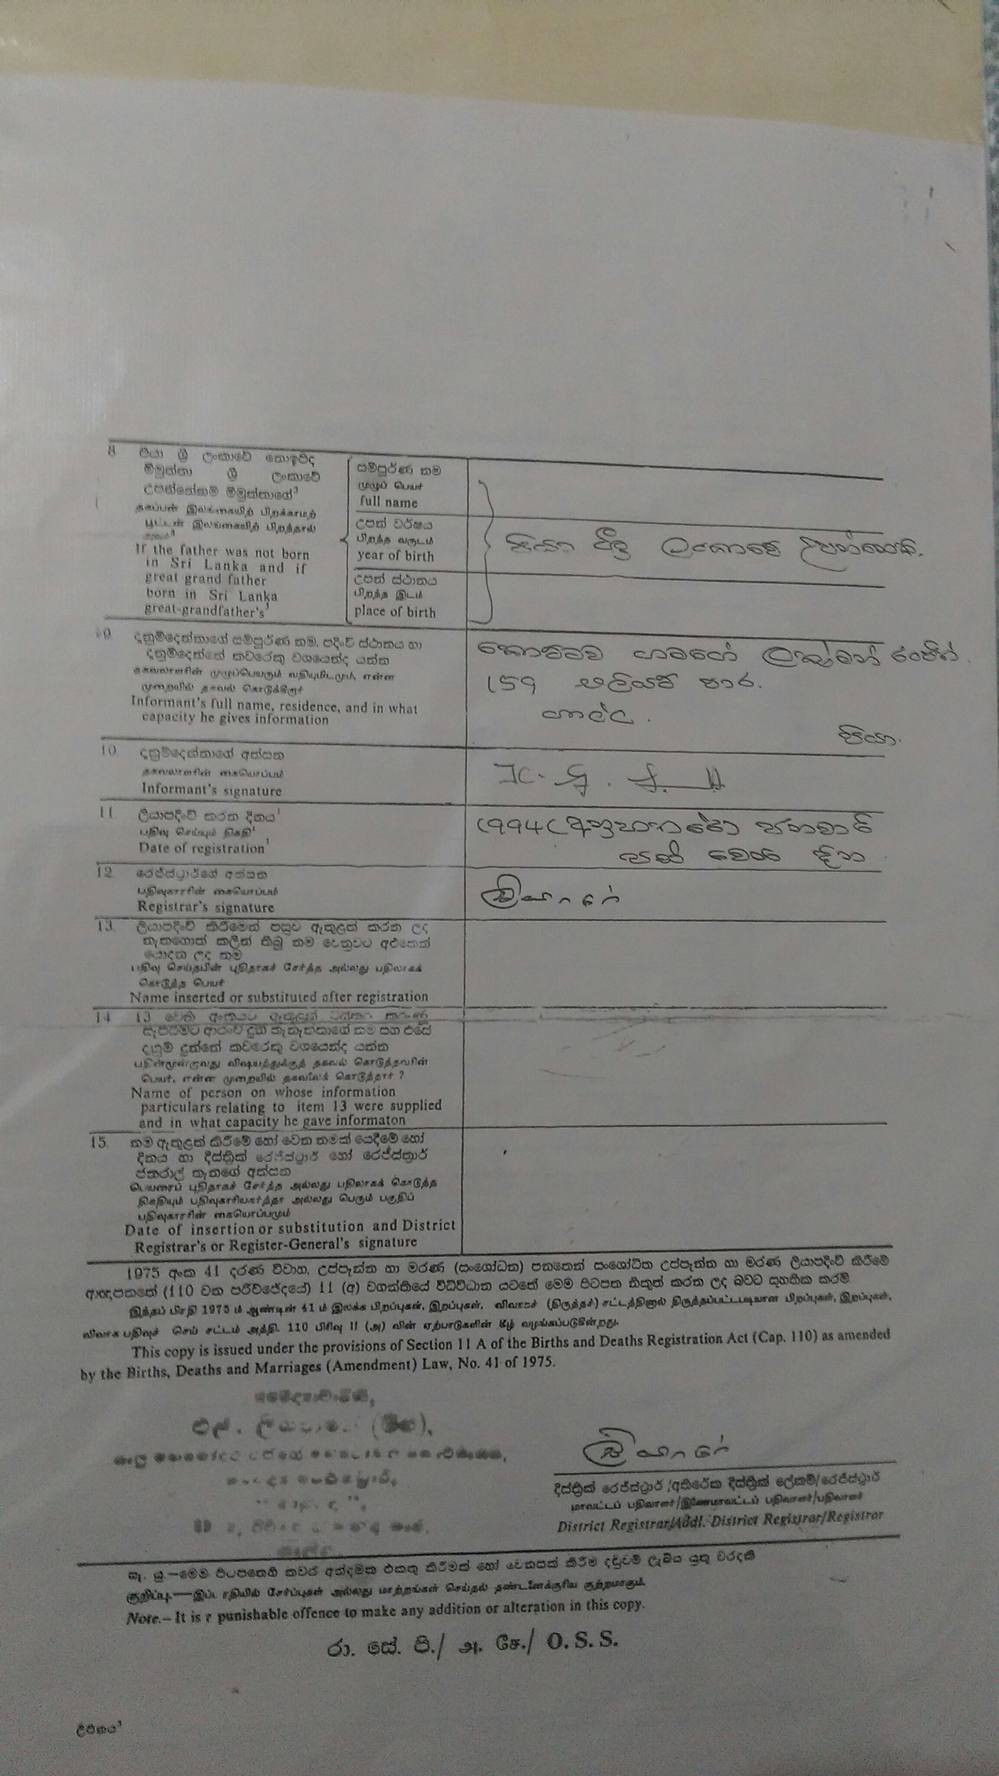 8 පියා ශ්‍රී ලංකාවේ නොඉපිද
මීමුත්තා ශ්‍රී ලංකාවේ
උපන්නේනම් මීමුත්තාගේ³
தகப்பன் இலங்கையிற் பிறக்காமற்
பூட்டன் இலங்கையிற் பிறந்தால்
If the father was not born
in Sri Lanka and if
great grand father
born in Sri Lanka
great-grandfather's³
සම්පූර්ණ නම
முழுப் பெயர்
full name
උපන් වර්ෂය
பிறந்த வருடம்
year of birth
උපන් ස්ථානය
பிறந்த இடம்
place of birth
පියා ශ්‍රී ලංකාවේ උපන්නෙකි.
9 දැනුම්දෙන්නාගේ සම්පූර්ණ නම, පදිංචි ස්ථානය හා
දැනුම්දෙන්නේ කවරෙකු වශයෙන්ද යන්න
தகவலாளரின் முழுப்பெயரும் வதியுமிடமும், என்ன
முறையில் தகவல் கொடுக்கிறார்
Informant's full name, residence, and in what
capacity he gives information
ගමගේ ලක්ෂ්මන් රංජිත්.
159 පාර.
ගාල්ල.
පියා.
10 දැනුම්දෙන්නාගේ අත්සන
தகவலாளரின் கையொப்பம்
Informant's signature
K. G.
11 ලියාපදිංචි කරන දිනය¹
பதிவு செய்யும் திகதி¹
Date of registration¹
1994 ජනවාරි
වෙනි දින
12 රෙජිස්ට්‍රාර්ගේ අත්සන
பதிவுகாரரின் கையொப்பம்
Registrar's signature
13. ලියාපදිංචි කිරීමෙන් පසුව ඇතුළත් කරන ලද
නැතහොත් කලින් තිබූ නම වෙනුවට අළුතෙන්
යොදන ලද නම
பதிவு செய்தபின் புதிதாகச் சேர்த்த அல்லது பதிலாகக்
கொடுத்த பெயர்
Name inserted or substituted after registration
14 13 වෙනි අංකයට ඇතුළත් කරුණු
සැපයීමට ආරංචි දුන් තැනැත්තාගේ නම සහ එසේ
දැනුම් දුන්නේ කවරෙකු වශයෙන්ද යන්න
பதின்மூன்றாவது விஷயத்துக்குத் தகவல் கொடுத்தவரின்
பெயர், என்ன முறையில் தகவலைக் கொடுத்தார் ?
Name of person on whose information
particulars relating to item 13 were supplied
and in what capacity he gave informaton
15. නම ඇතුළත් කිරීමේ හෝ වෙන නමක් යෙදීමේ හෝ
දිනය හා දිස්ත්‍රික් රෙජිස්ට්‍රාර් හෝ රෙජිස්ත්‍රාර්
ජනරාල් තැනගේ අත්සන
பெயரைப் புதிதாகச் சேர்த்த அல்லது பதிலாகக் கொடுத்த
திகதியும் பதிவுகாரியஸ்தர் அல்லது பெரும் பகுதிப்
பதிவுகாரரின் கையொப்பமும்
Date of insertion or substitution and District
Registrar's or Register-General's signature
1975 අංක 41 දරණ විවාහ, උප්පැන්න හා මරණ (සංශෝධන) පනතෙන් සංශෝධිත උප්පැන්න හා මරණ ලියාපදිංචි කිරීමේ
ආඥාපනතේ (110 වන පරිච්ඡේදයේ) 11 (අ) වගන්තියේ විධිවිධාන යටතේ මෙම පිටපත නිකුත් කරන ලද බවට සහතික කරමි
இந்தப் பிரதி 1975 ம் ஆண்டின் 41 ம் இலக்க பிறப்புகள், இறப்புகள், விவாகச் (திருத்தச்) சட்டத்தினால் திருத்தப்பட்டபடியான பிறப்புகள், இறப்புகள்,
விவாக பதிவுச் செய் சட்டம் அத்தி. 110 பிரிவு 11 (அ) வின் ஏற்பாடுகளின் கீழ் வழங்கப்படுகின்றது.
This copy is issued under the provisions of Section 11 A of the Births and Deaths Registration Act (Cap. 110) as amended
by the Births, Deaths and Marriages (Amendment) Law, No. 41 of 1975.
දිස්ත්‍රික් රෙජිස්ට්‍රාර්/අතිරේක දිස්ත්‍රික් ලේකම්/රෙජිස්ට්‍රාර්
மாவட்டப் பதிவாளர்/இணைமாவட்டப் பதிவாளர்/பதிவாளர்
District Registrar/Addl. District Registrar/Registrar
සැ. යු.—මෙම පිටපතෙහි කවර අන්දමක එකතු කිරීමක් හෝ වෙනසක් කිරීම දඬුවම් ලැබිය යුතු වරදකි
குறிப்பு.—இப் பிரதியில் சேர்ப்புகள் அல்லது மாற்றங்கள் செய்தல் தண்டனைக்குரிய குற்றமாகும்.
Note.—It is a punishable offence to make any addition or alteration in this copy.
රා. සේ. පි./ அ. சே./ O. S. S.